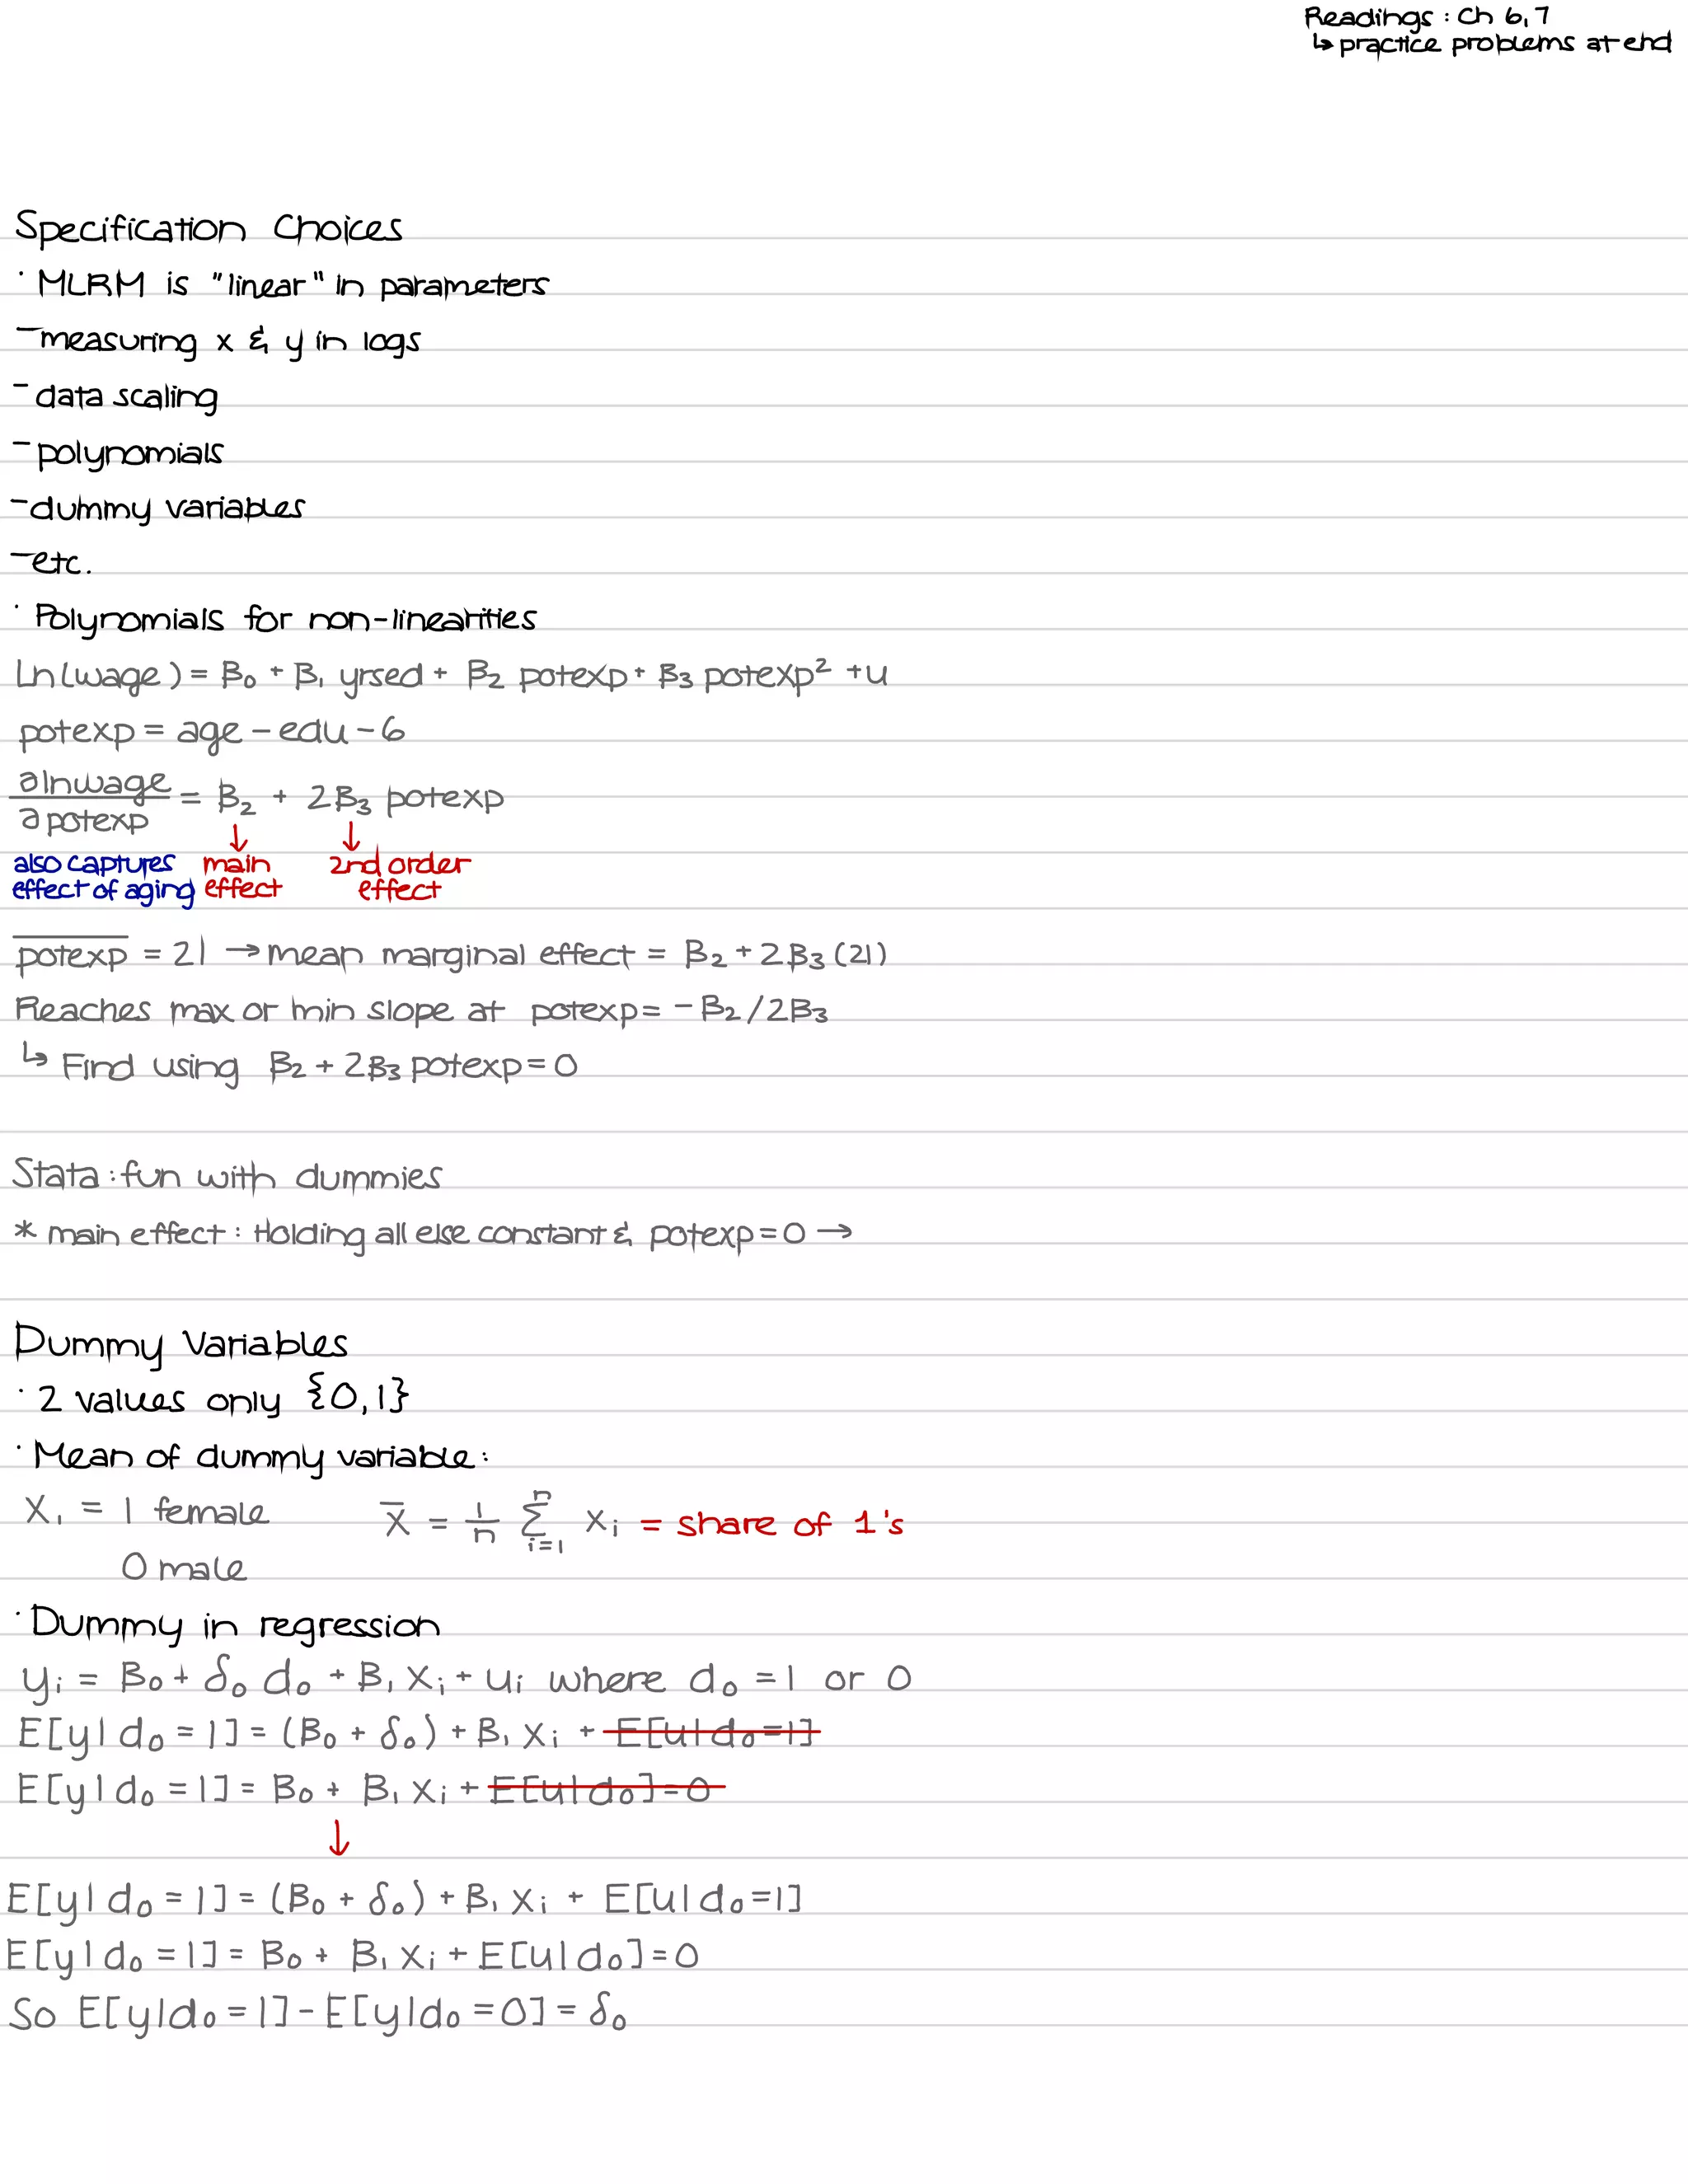 Readings: Ch 6,7
↳ practice problems at end
Specification Choices
· MLRM is "linear" in parameters
- measuring x & y in logs
- data scaling
- polynomials
- dummy variables
- etc.
· Polynomials for non-linearities
Ln(wage) = B₀ + B₁ yrsed + B₂ potexp + B₃ potexp² + u
potexp = age - edu - 6
∂lnwage/∂potexp = B₂ + 2B₃ potexp
↓ ↓
also captures effect of aging main effect 2nd order effect
p̅o̅t̅e̅x̅p̅ = 21 → mean marginal effect = B₂ + 2B₃(21)
Reaches max or min slope at potexp = -B₂/2B₃
↳ Find using B₂ + 2B₃ potexp = 0
Stata: fun with dummies
* main effect: Holding all else constant & potexp = 0 →
Dummy Variables
· 2 values only {0,1}
· Mean of dummy variable:
X₁ = 1 female X̅ = 1/n Σ_{i=1}^{n} Xᵢ = share of 1's
0 male
· Dummy in regression
yᵢ = B₀ + δ₀ d₀ + B₁ Xᵢ + uᵢ where d₀ = 1 or 0
E[y|d₀ = 1] = (B₀ + δ₀) + B₁ Xᵢ + E[u|d₀=1]
E[y|d₀ = 1] = B₀ + B₁ Xᵢ + E[u|d₀]=0
↓
E[y|d₀ = 1] = (B₀ + δ₀) + B₁ Xᵢ + E[u|d₀=1]
E[y|d₀ = 1] = B₀ + B₁ Xᵢ + E[u|d₀]=0
So E[y|d₀ = 1] - E[y|d₀ = 0] = δ₀